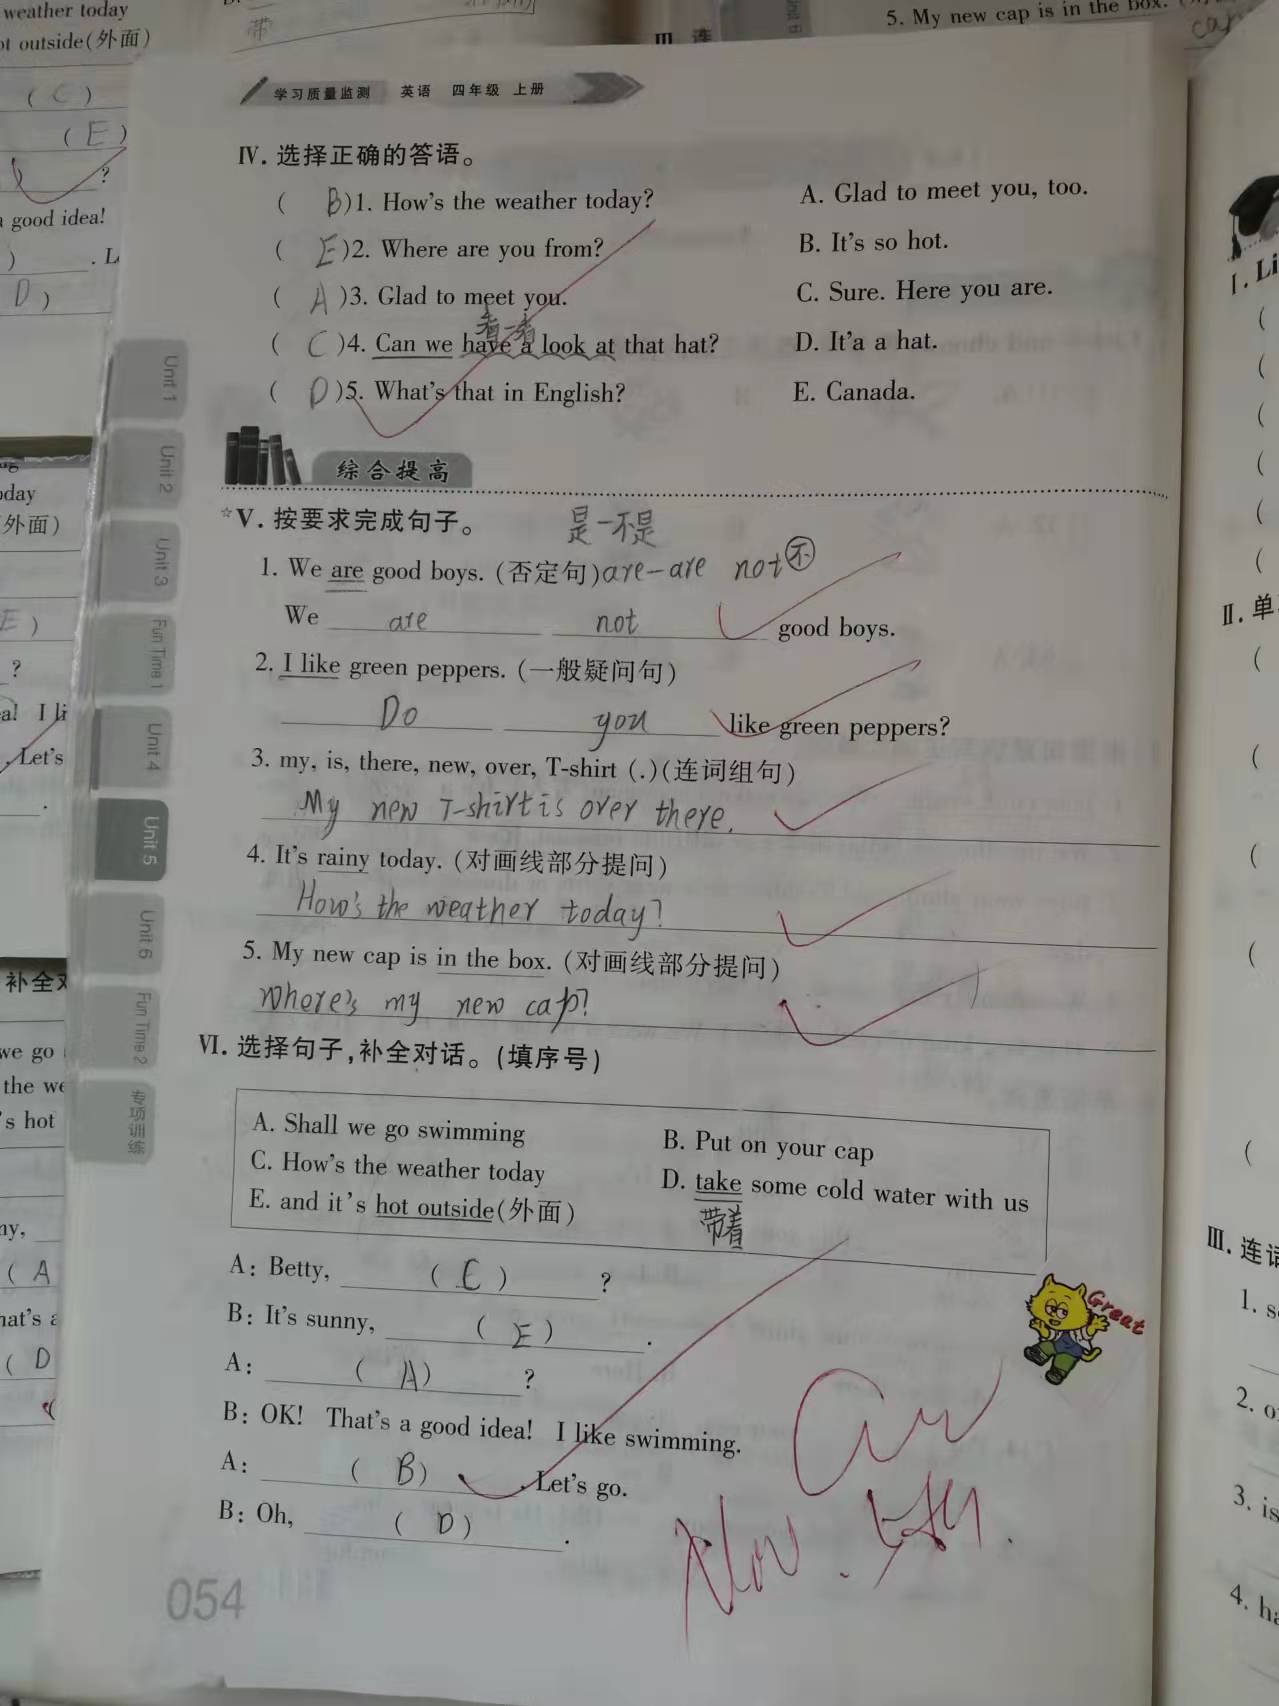 weather today
ot outside(外面)
( C )
( E )
?
a good idea!
D )
带
5. My new cap is in the box.
学习质量监测 英语 四年级 上册
Ⅳ. 选择正确的答语。
( B )1. How's the weather today? A. Glad to meet you, too.
( E )2. Where are you from? B. It's so hot.
( A )3. Glad to meet you. C. Sure. Here you are.
看一看
( C )4. Can we have a look at that hat? D. It'a a hat.
( D )5. What's that in English? E. Canada.
综合提高
☆Ⅴ. 按要求完成句子。 是-不是
1. We are good boys. (否定句)are-are not 不
We are not good boys.
2. I like green peppers. (一般疑问句)
Do you like green peppers?
3. my, is, there, new, over, T-shirt (.)(连词组句)
My new T-shirt is over there.
4. It's rainy today. (对画线部分提问)
How's the weather today?
5. My new cap is in the box. (对画线部分提问)
Where's my new cap?
Ⅵ. 选择句子,补全对话。(填序号)
A. Shall we go swimming B. Put on your cap
C. How's the weather today D. take some cold water with us
E. and it's hot outside(外面) 带着
A: Betty, ( C ) ?
B: It's sunny, ( E ) .
A: ( A ) ?
B: OK! That's a good idea! I like swimming.
A: ( B ) . Let's go.
B: Oh, ( D ) .
Great
Nov.
054
Unit 1
Unit 2
Unit 3
Fun Time 1
Unit 4
Unit 5
Unit 6
Fun Time 2
专项训练
外面)
E )
?
Let's
补全对
we go
the we
's hot
( A
( D
Ⅰ. Li
Ⅱ. 单
Ⅲ. 连
1. s
2. o
3. is
4. ha